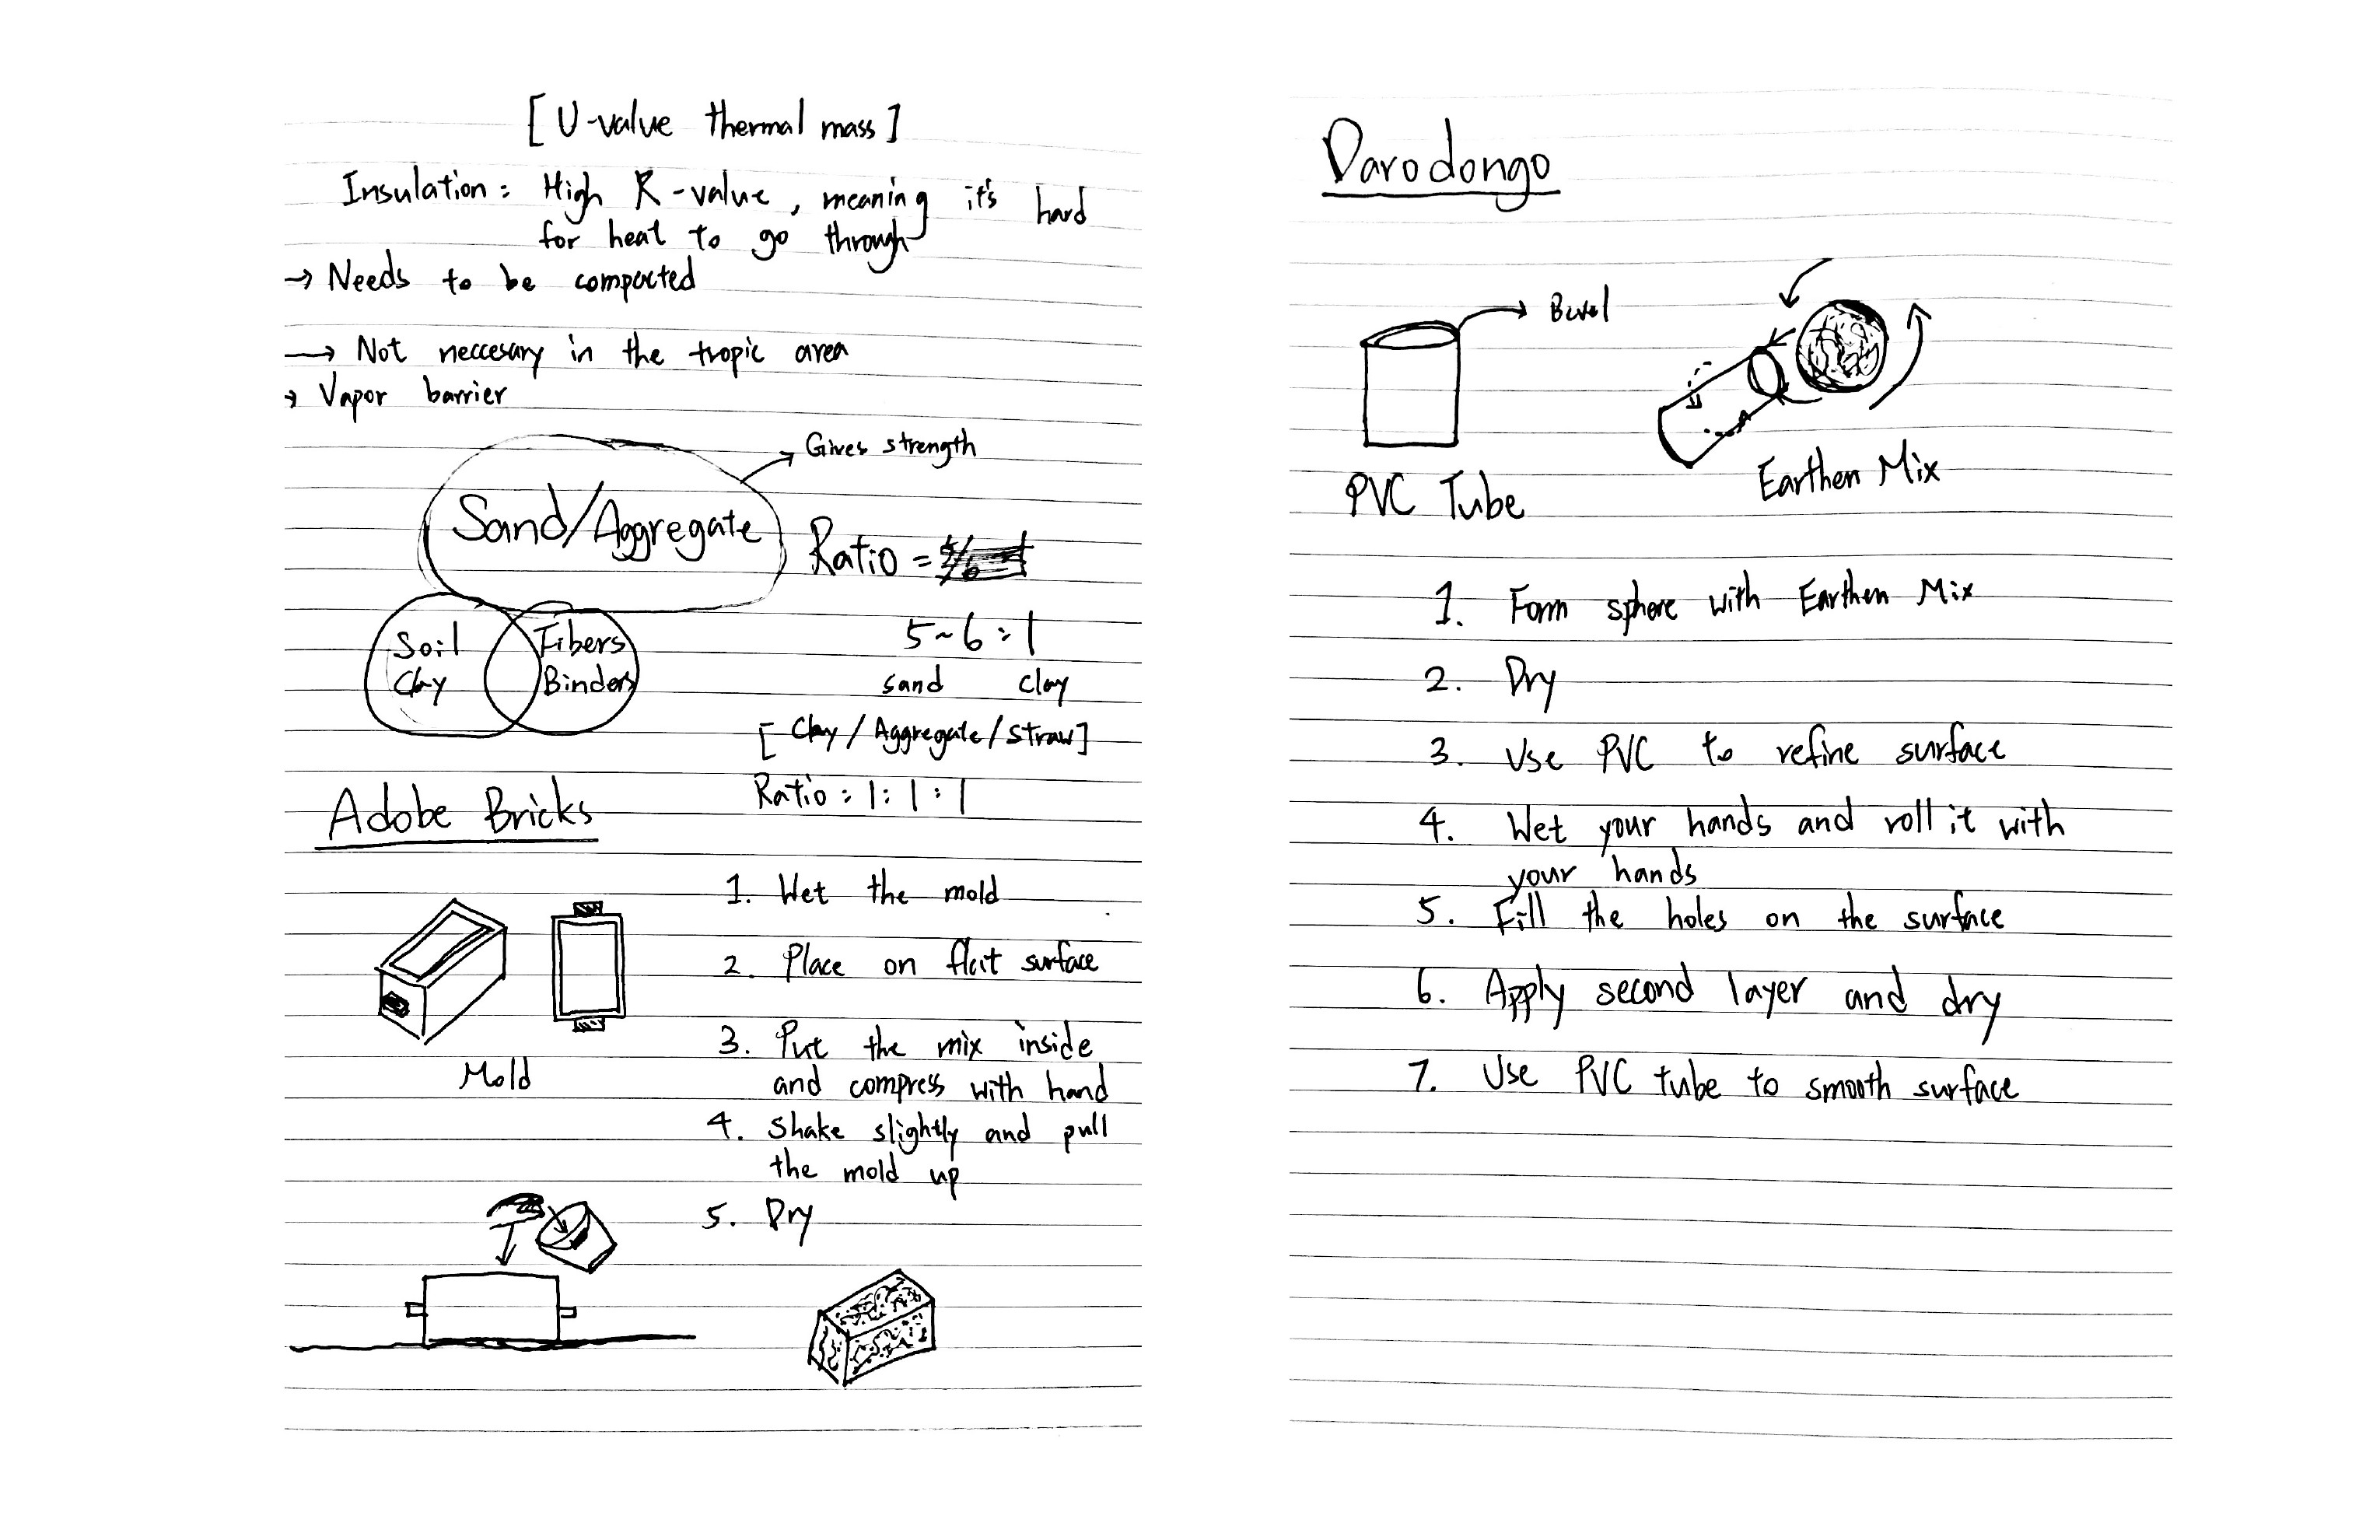 [U-value thermal mass]
Insulation: High R-value, meaning it's hard
for heat to go through
→ Needs to be compacted
→ Not neccesary in the tropic area
→ Vapor barrier
Gives strength
Sand/Aggregate
Ratio =
Soil
Clay
Fibers
Binders
5~6:1
sand clay
[Clay/Aggregate/Straw]
Ratio: 1:1:1
Adobe Bricks
1. Wet the mold
2. Place on flat surface
3. Put the mix inside
and compress with hand
Mold
4. Shake slightly and pull
the mold up
5. Dry
Darodongo
Bevel
PVC Tube
Earthen Mix
1. Form sphere with Earthen Mix
2. Dry
3. Use PVC to refine surface
4. Wet your hands and roll it with
your hands
5. Fill the holes on the surface
6. Apply second layer and dry
7. Use PVC tube to smooth surface